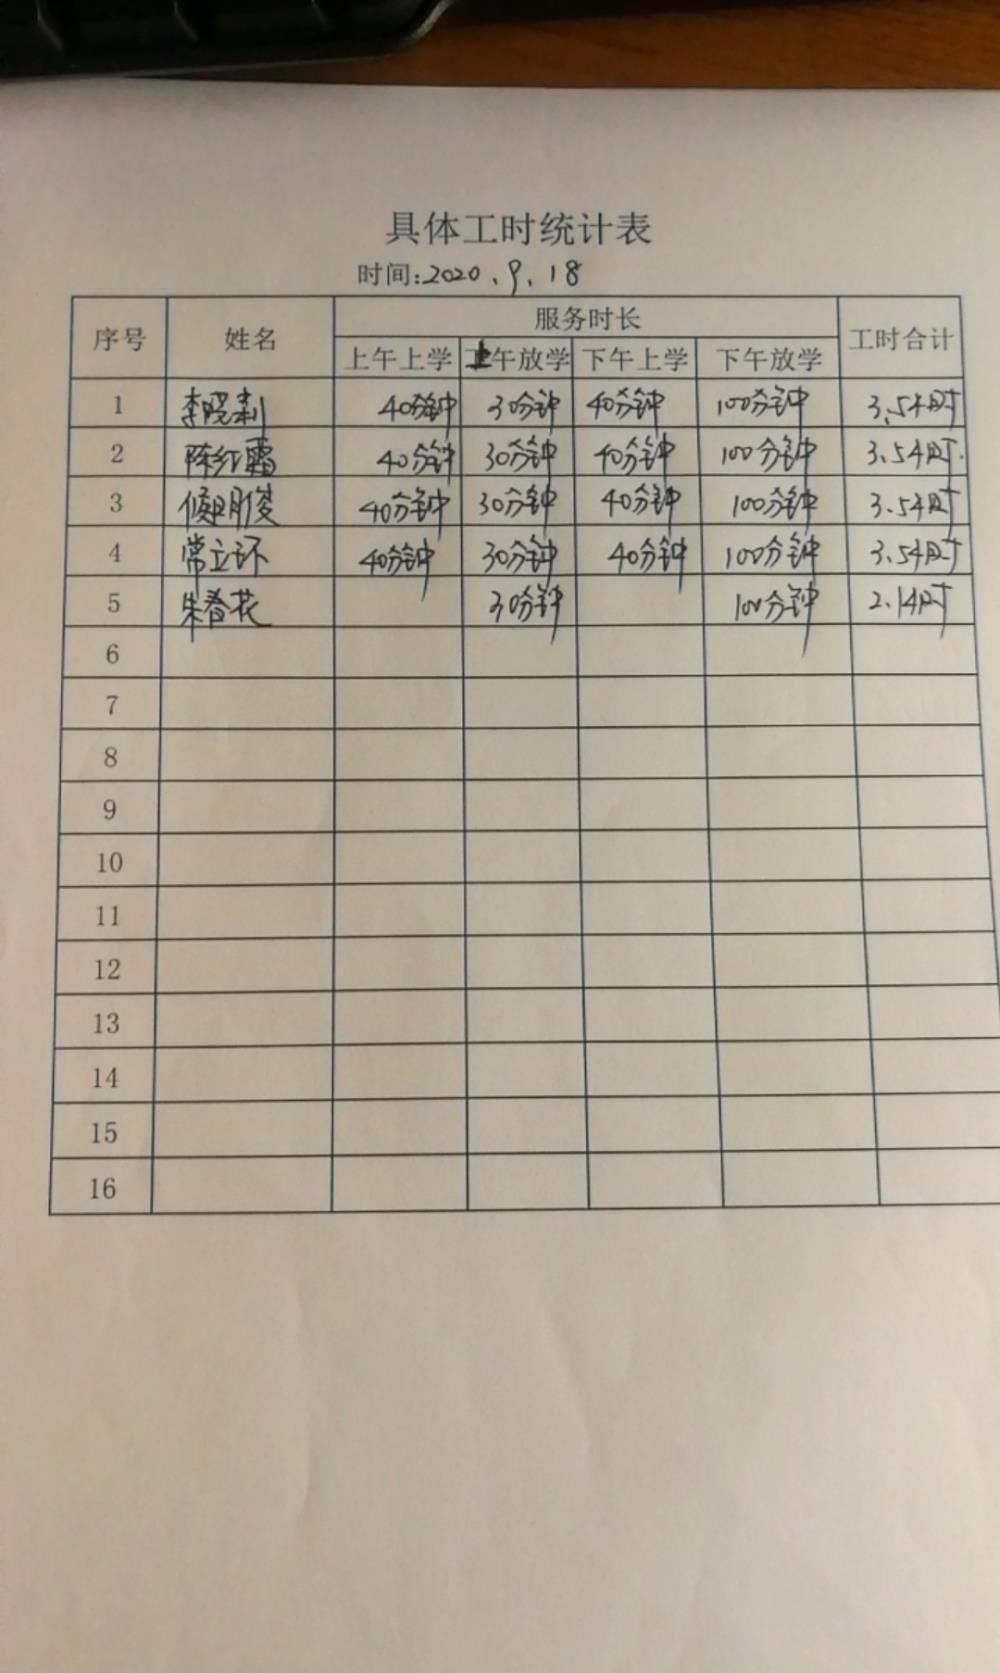 具体工时统计表
时间:2020.9.18
序号 姓名 服务时长 工时合计
上午上学 上午放学 下午上学 下午放学
1 李晓莉 40分钟 30分钟 40分钟 100分钟 3.5小时
2 陈红霞 40分钟 30分钟 40分钟 100分钟 3.5小时.
3 40分钟 30分钟 40分钟 100分钟 3.5小时
4 常立环 40分钟 30分钟 40分钟 100分钟 3.5小时
5 朱春花 30分钟 100分钟 2.1小时
6
7
8
9
10
11
12
13
14
15
16